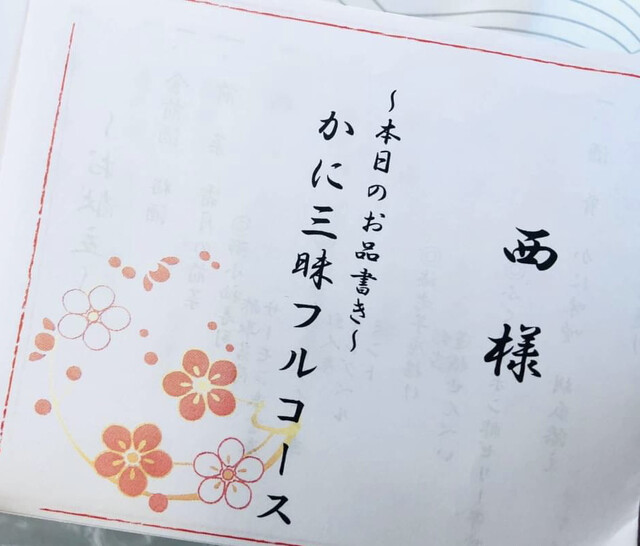 西様
～本日のお品書き～
かに三昧フルコース